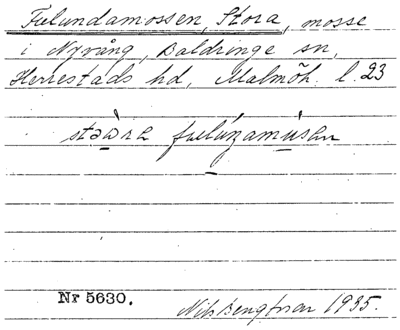 Fulundamossen, Stora, mosse
i Nyvång, Baldringe sn,
Herrestads hd, Malmöh. l. 23
Nr 5630.
Nils Bengtsson 1935.